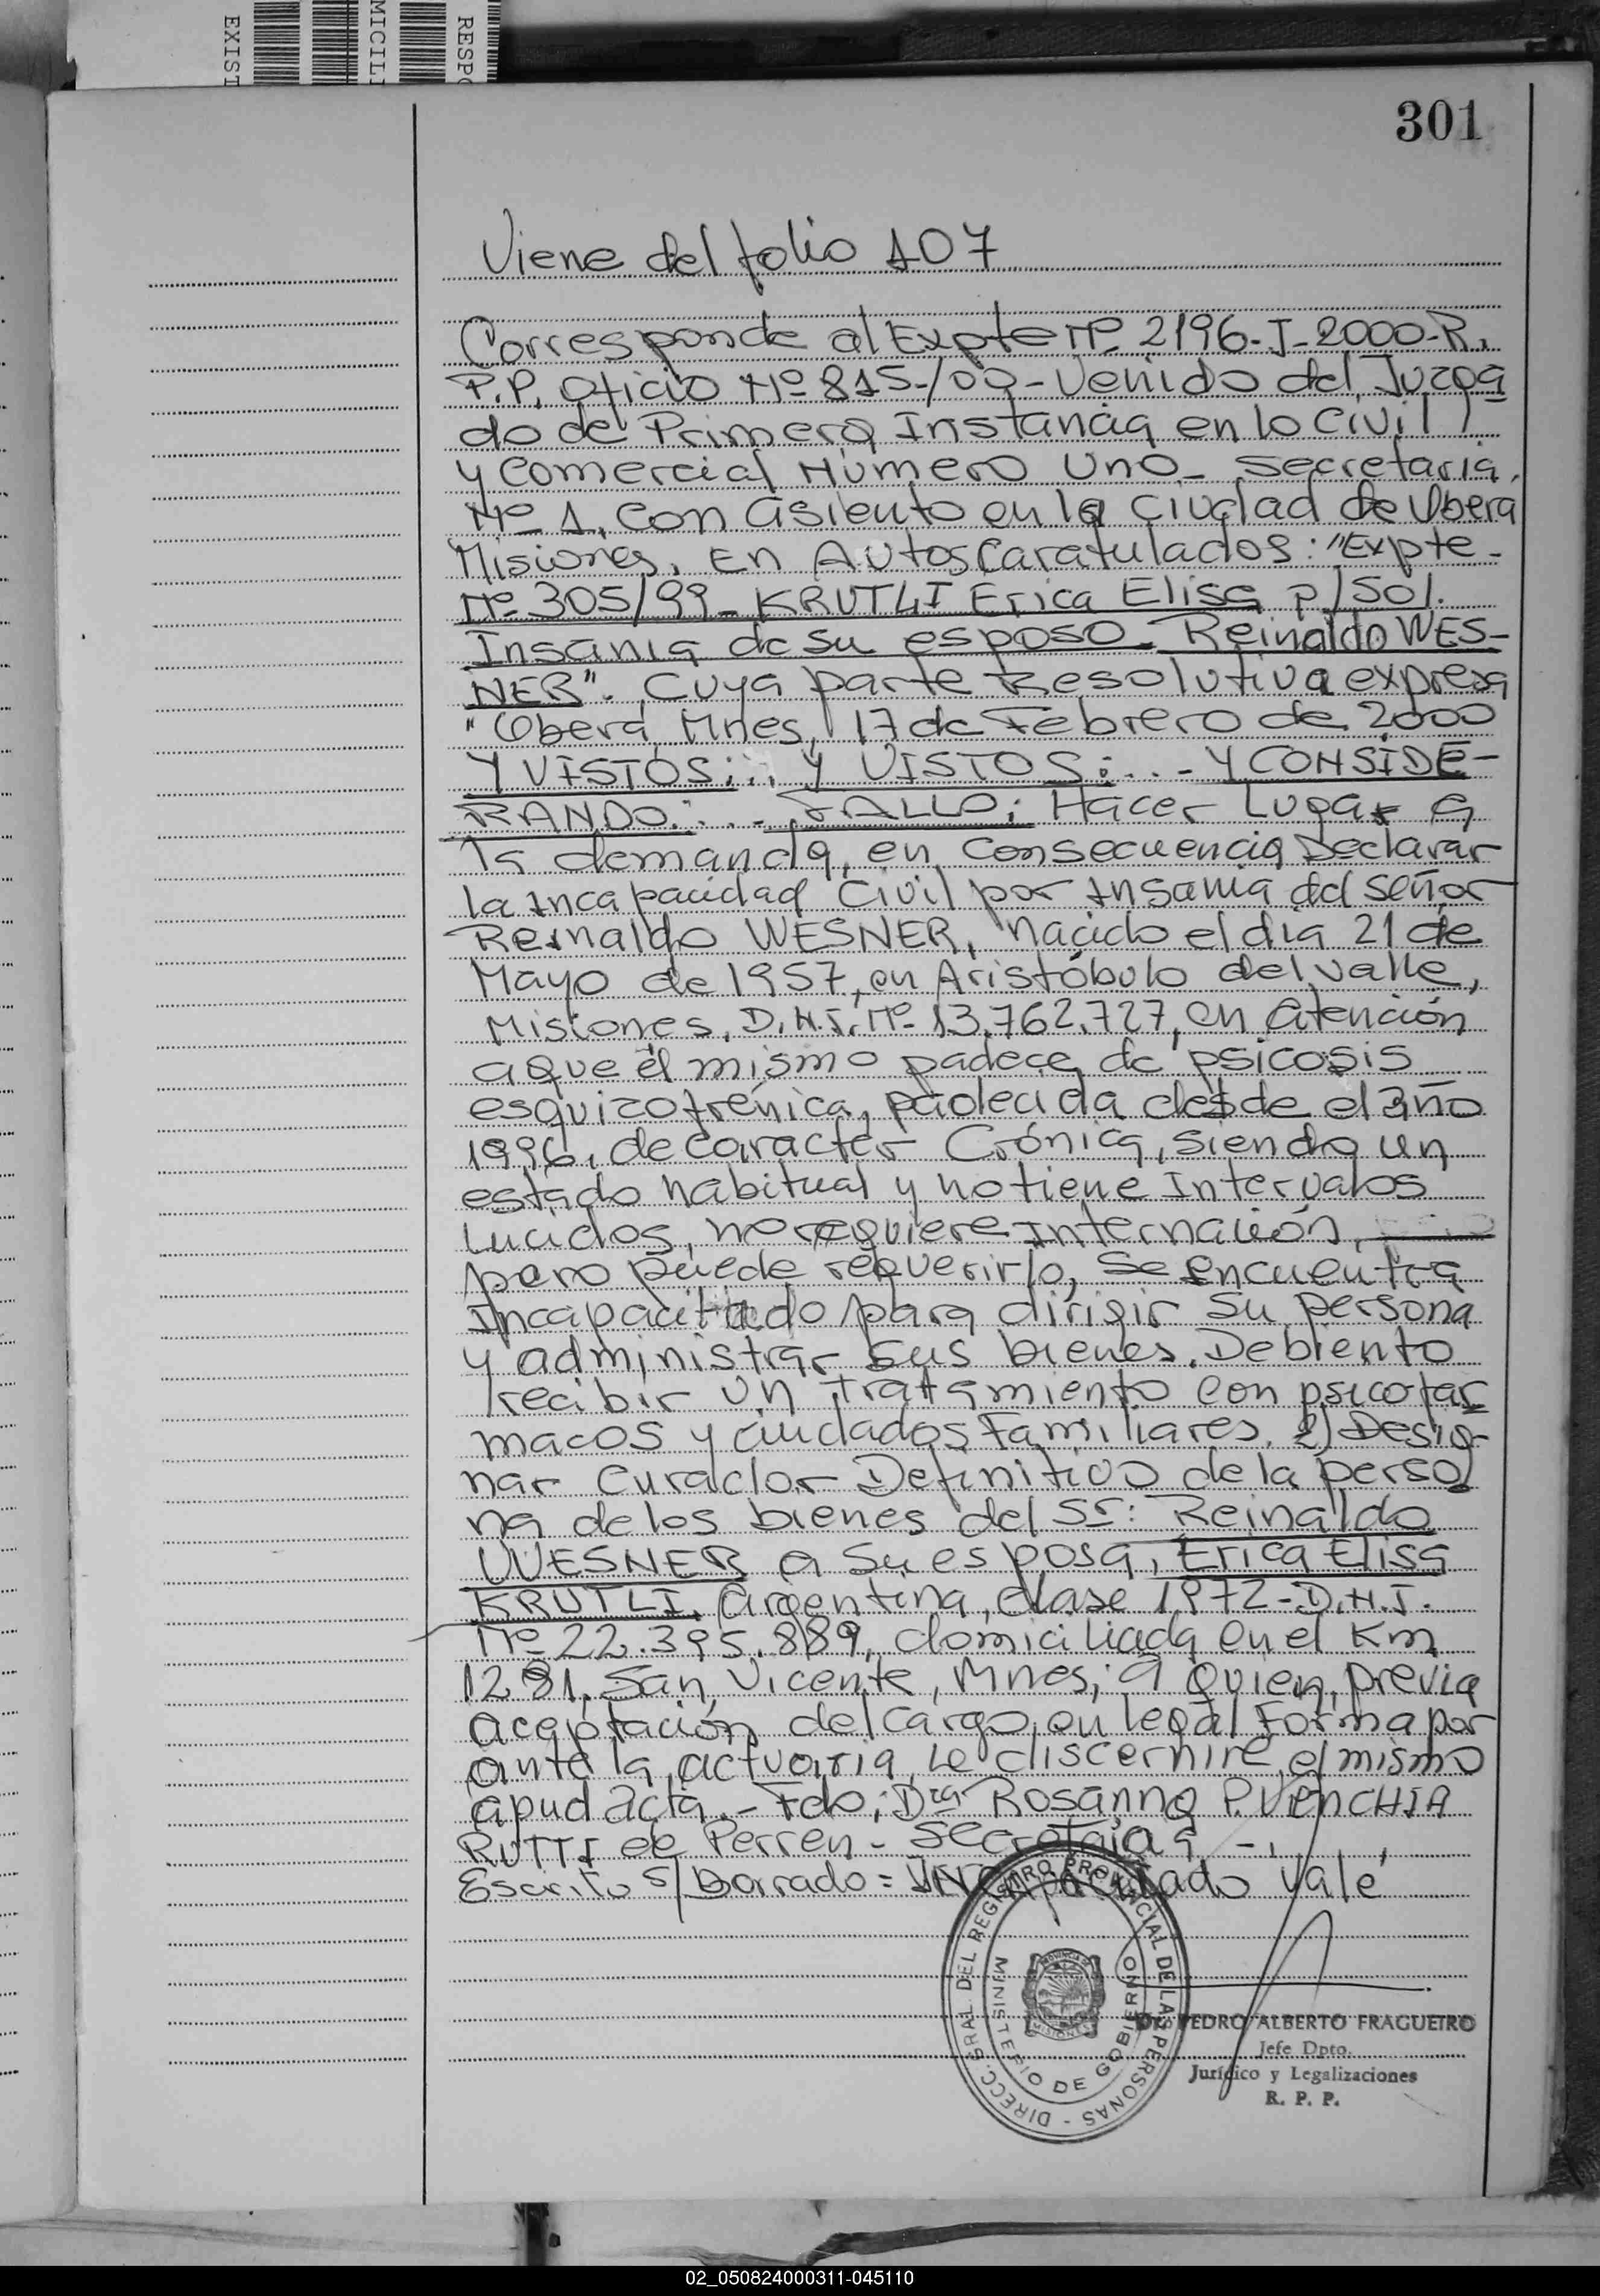 RESPO
MICILI
EXIST
301
Viene del folio 107
Corresponde al Expte Nº 2196-J-2000-R.
P.P. Oficio Nº 815-/00-Venido del Juzga
do de Primera Instancia en lo Civil
y Comercial Número Uno- Secretaria
Nº 1, con asiento en la Ciudad de Oberá
Misiones. En Autos Caratulados: "Expte-
Nº 305/99- KRUTLI Erica Elisa p/Sol.
Insania de su esposo- Reinaldo WES-
NER". Cuya parte Resolutiva expresa
"Oberá, Mnes, 17 de Febrero de 2000
Y VISTOS:.. Y VISTOS:... - Y CONSIDE-
RANDO:... - FALLO: Hacer Lugar a
la demanda, en consecuencia Declarar
la Incapacidad Civil por Insania del señor
Reinaldo WESNER, nacido el día 21 de
Mayo de 1957, en Aristóbulo del Valle,
Misiones, D.N.I. Nº 13.762.727, en atención
a que él mismo padece de psicosis
esquizofrénica, padecida desde el año
1996, de carácter Crónica, siendo un
estado habitual y no tiene Intervalos
Lucidos, no requiere Internación,
pero puede requerirlo, se encuentra
Incapacitado para dirigir su persona
y administrar sus bienes. Debiento
recibir un tratamiento con psicofar
macos y cuidados Familiares. 2) Desig-
nar Curador Definitivo de la perso
na de los bienes del Sr: Reinaldo
WESNER a su esposa, Erica Elisa
KRUTLI, argentina, clase 1972-D.N.I.
Nº 22.395.889, domiciliada en el Km
1281, San Vicente, Mnes; a quien, previa
aceptación del cargo, en legal Forma por
ante la actuaria, le discerniré el mismo
apud acta.- Fdo; Dra Rosanna P. VENCHIA
RUTTI de Perren - Secretaria -
Escrito s/Borrado = Incapacitado Vale
DIRECC. GRAL. DEL REGISTRO PROVINCIAL DE LAS PERSONAS -
MINISTERIO DE GOBIERNO
PROVINCIA DE
MISIONES
Dr. PEDRO ALBERTO FRAGUEIRO
Jefe Dpto.
Jurídico y Legalizaciones
R. P. P.
02_050824000311-045110